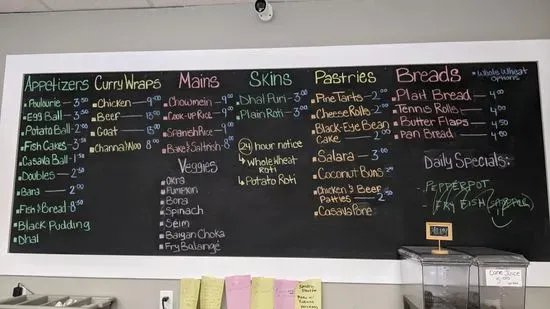 Appetizers
Poulourie — 3.50
Egg Ball — 3.50
Potato Ball — 2.00
Fish Cakes — 3.00
Casava Ball — 1.50
Doubles — 2.50
Bara — 2.00
Fish & Bread — 8.50
Black Pudding
Dhal
Curry Wraps
Chicken — 9.00
Beef —
Goat —
Channa/Aloo — 8.00
Mains
Chowmein — 9.00
Cook-up Rice — 9.00
Spanish Rice — 9.00
Bake & Saltfish — 8.00
Veggies
Okra
Pumpkin
Bora
Spinach
Seim
Baigan Choka
Fry Balangé
Skins
Dhal Puri — 3.00
Plain Roti — 3.00
24 hour notice
Whole Wheat Roti
Potato Roti
Pastries
Pine Tarts — 2.00
Cheese Rolls — 2.00
Black-Eye Bean
Cake — 2.00
Salara — 3.00
Coconut Buns 2.00
Chicken & Beef
Patties — 2.50
Casava Pone
Breads
Whole Wheat
options
Platt Bread — 4.00
Tennis Rolls — 4.00
Butter Flaps — 4.50
Pan Bread — 4.00
Daily Specials:
- PEPPERPOT
- FRY FISH (SNAPPER)